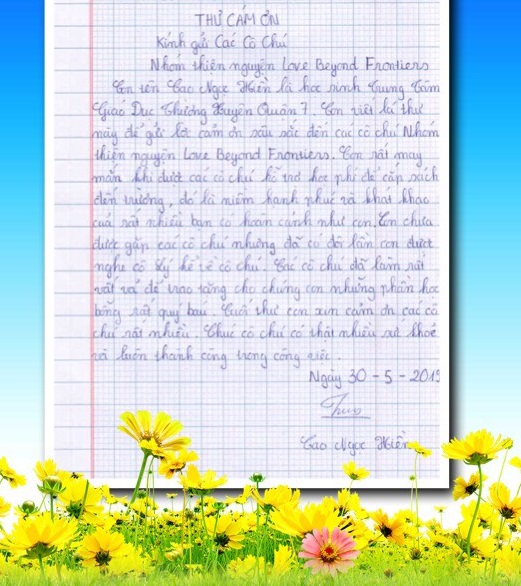 THƯ CẢM ƠN
Kính gửi Các Cô Chú
Nhóm thiện nguyện Love Beyond Frontiers
Con tên Cao Ngọc Hiền là học sinh Trung Tâm
Giáo Dục Thường Xuyên Quận 7. Con viết lá thư
này để gửi lời cảm ơn sâu sắc đến các cô chú Nhóm
thiện nguyện Love Beyond Frontiers. Con rất may
mắn khi được các cô chú hỗ trợ học phí để cắp sách
đến trường, đó là niềm hạnh phúc và khát khao
của rất nhiều bạn có hoàn cảnh như con. Con chưa
được gặp các cô chú nhưng đã có đôi lần con được
nghe cô Lý kể về cô chú. Các cô chú đã làm rất
vất vả để trao tặng cho chúng con những phần học
bổng rất quý báu. Cuối thư con xin cảm ơn các cô
chú rất nhiều. Chúc cô chú có thật nhiều sức khoẻ
và luôn thành công trong công việc.
Ngày 30 - 5 - 2019
Cao Ngọc Hiền